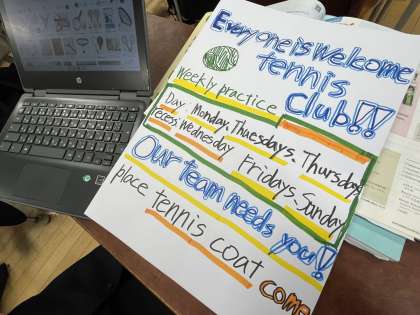 Everyone is welcome
tennis
Club!!
Weekly practice
Day Monday, Thursdays, Thursday
recess Wednesday Fridays, Sunday
Our team needs you!!
place tennis coat come
hp